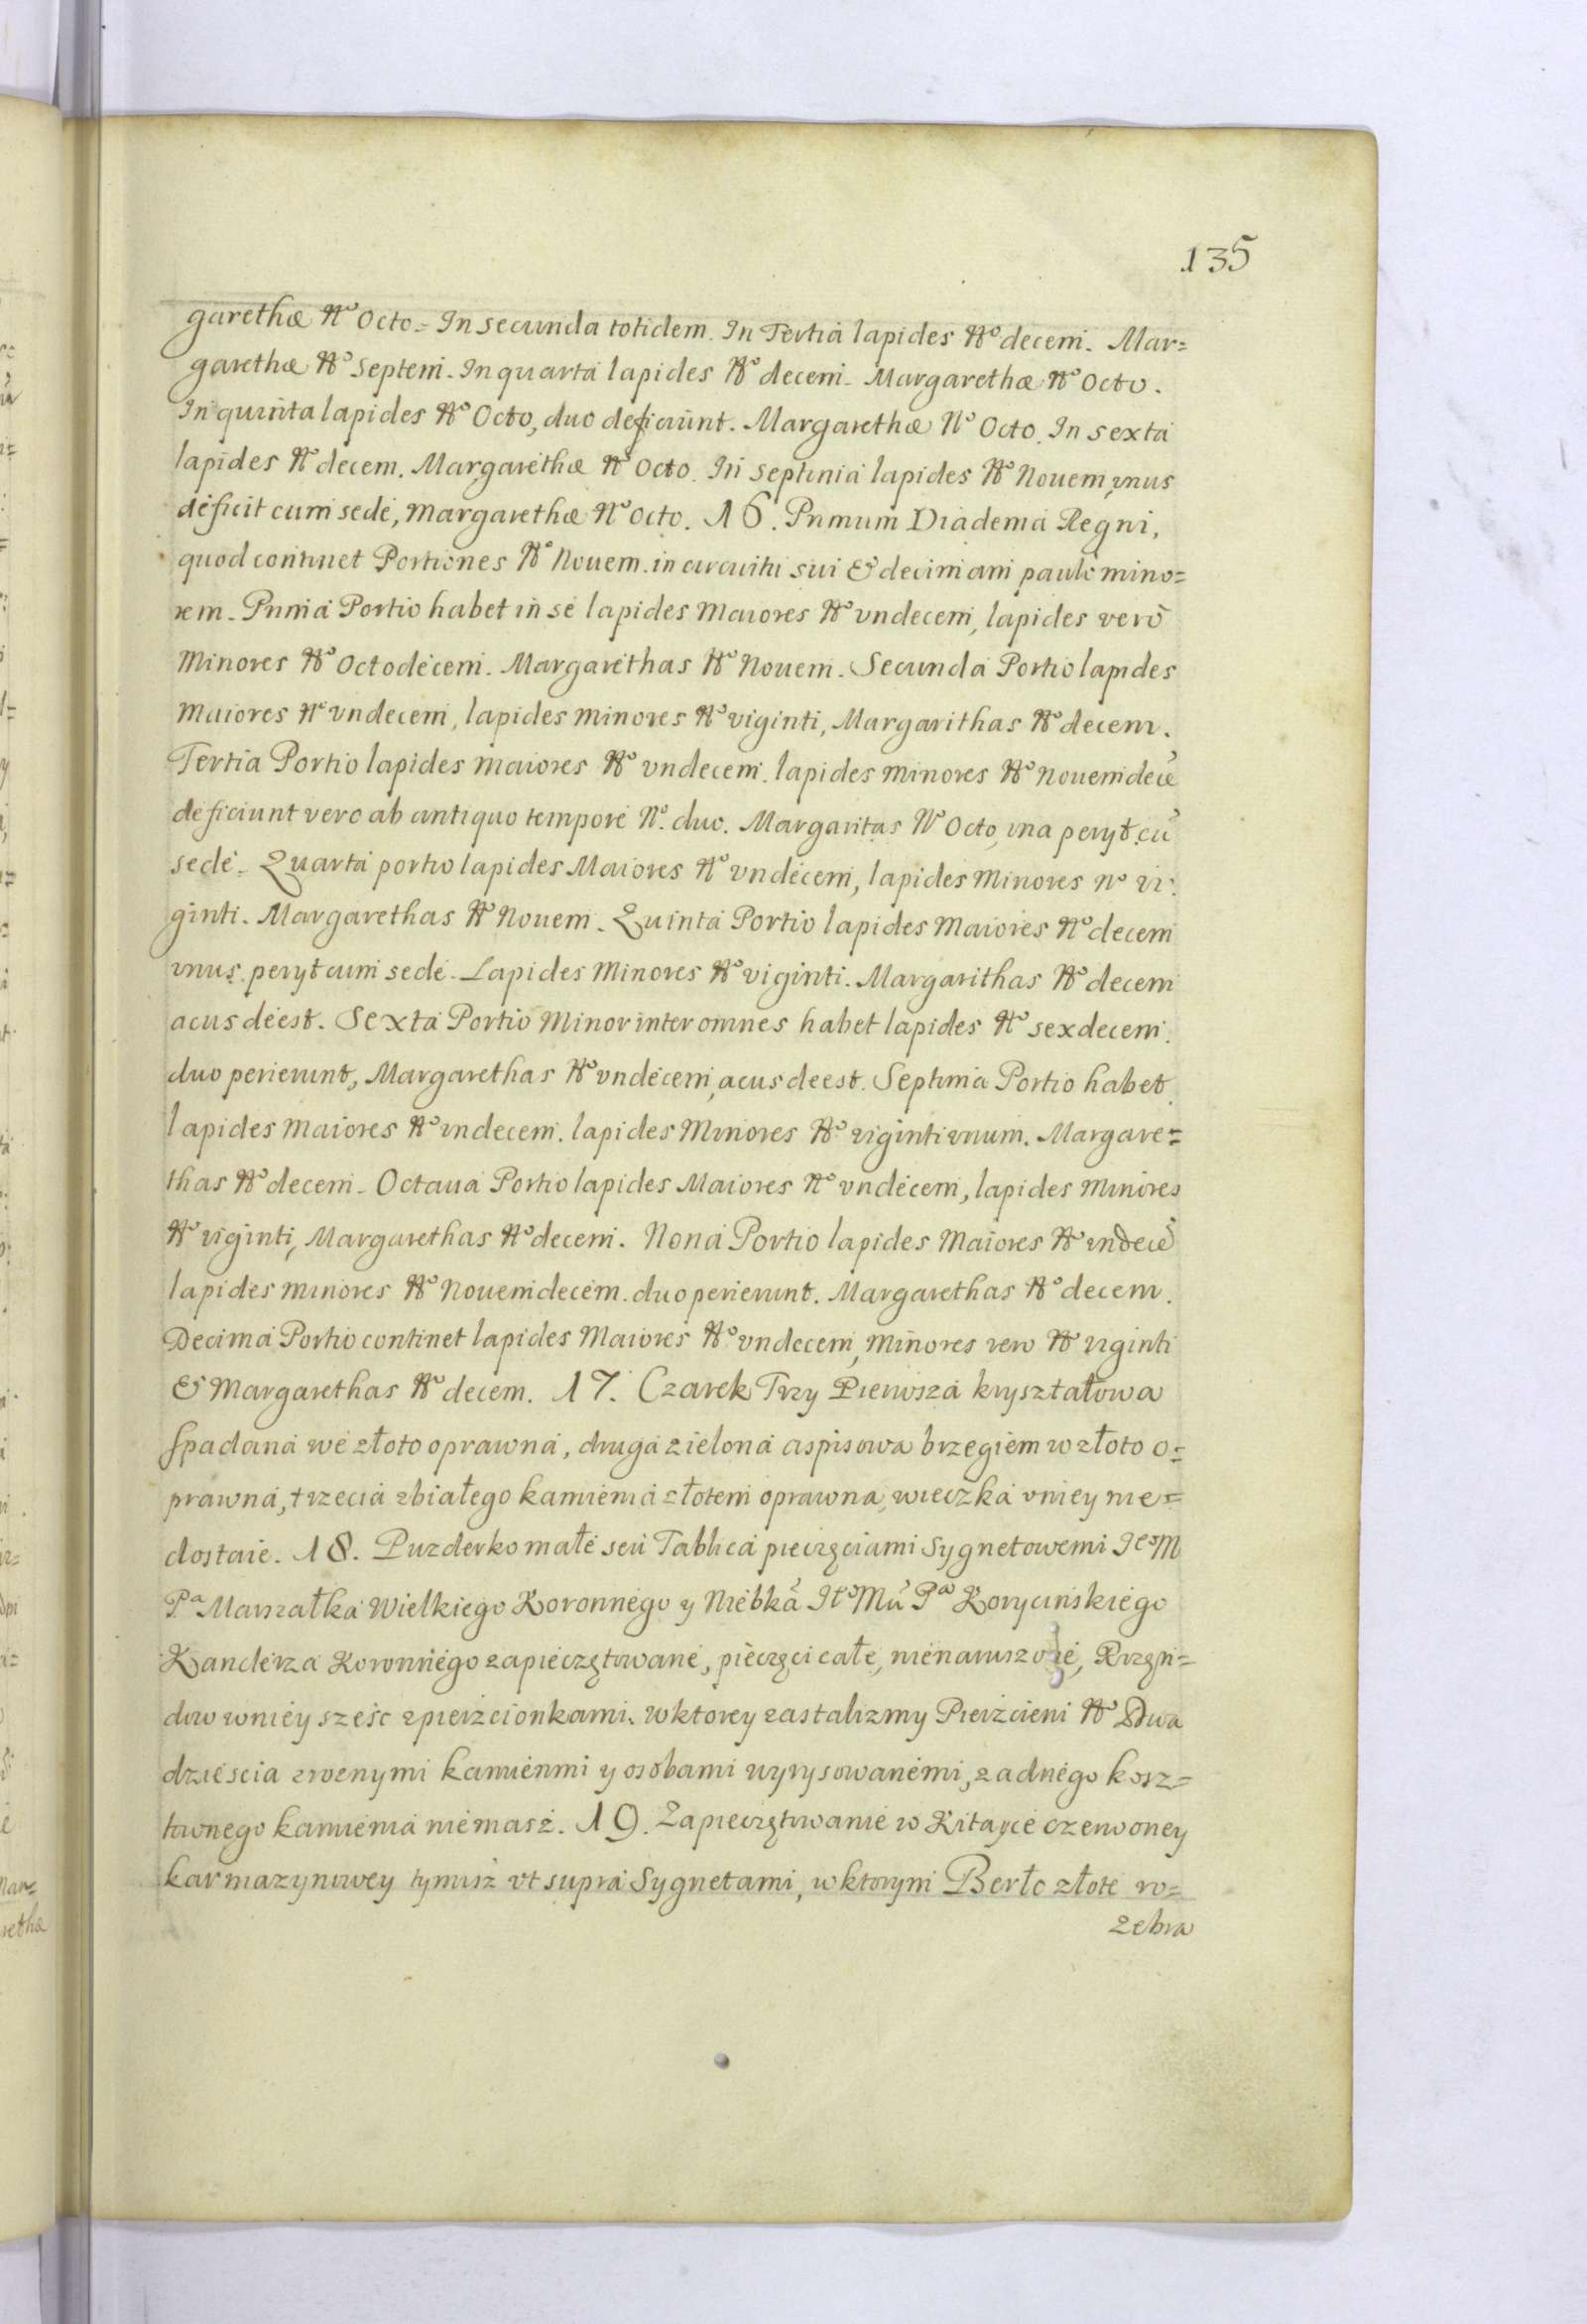 135
garethæ No Octo = In secunda totidem. In Tertia lapides No decem. Mar=
garethæ No Septem. In quarta lapides No decem. Margarethæ No Octo.
In quinta lapides No Octo, duo deficiunt. Margarethæ No Octo. In sexta
lapides No decem. Margarethæ No Octo. In septima lapides No Nouem, vnus
deficit cum sede, Margarethæ No Octo. 16. Primum Diadema Regni,
quod continet Portiones No Nouem in circuitu sui & decimam paulo mino=
rem. Prima Portio habet in se lapides Maiores No vndecem, lapides verò
Minores No Octodecem. Margarethas No Nouem. Secunda Portio lapides
Maiores No vndecem, lapides minores No viginti, Margarithas No decem.
Tertia Portio lapides maiores No vndecem. lapides minores No nouemdecē
deficiunt vero ab antiquo tempore No. duo. Margaritas No Octo, vna peryt cū
sede = Quarta portio lapides Maiores No vndecem, lapides Minores No vi=
ginti. Margarethas No Nouem. Quinta Portio lapides Maiores No decem
vnus peryt cum sede. Lapides Minores No viginti. Margarithas No decem
acus deest. Sexta Portio Minor inter omnes habet lapides No sexdecem.
duo perierunt, Margarethas No vndecem, acus deest. Septima Portio habet
lapides Maiores No vndecem. lapides Minores No viginti vnum. Margare=
thas No decem. Octaua Portio lapides Maiores No vndecem, lapides Minores
No viginti, Margarethas No decem. Nona Portio lapides Maiores No vndecē
lapides minores No Nouemdecem. duo perierunt. Margarethas No decem.
Decima Portio continet lapides Maiores No vndecem, Minores vero No viginti
& Margarethas No decem. 17. Czarek Trzy Pierwsza kryształowa
spadana we złoto oprawna, druga zielona aspisowa brzegiem w złoto o=
prawna, trzecia z białego kamienia złotem oprawna, wieczka v niey nie=
dostaie. 18. Puzderko małe seu Tablica pieczęciami Sygnetowemi JeoM
Pa Marszałka Wielkiego Koronnego y Niebka JeoMu Pa Korycinskiego
Kanclerza Koronnego zapieczętowane, pieczęci całe, nienaruszone, Rzęn=
dow w niey sześc z pierzcionkami. w ktorey zastalizmy Pierzcieni No Dwa
dziescia z roznymi kamienmi y osobami wyrysowanemi, zadnego kosz=
townego kamienia niemasz. 19. Zapieczętowanie w Kitayce czerwoney
karmazynowey tymisz vt supra Sygnetami, w ktorym Berło złote ro=
zebra